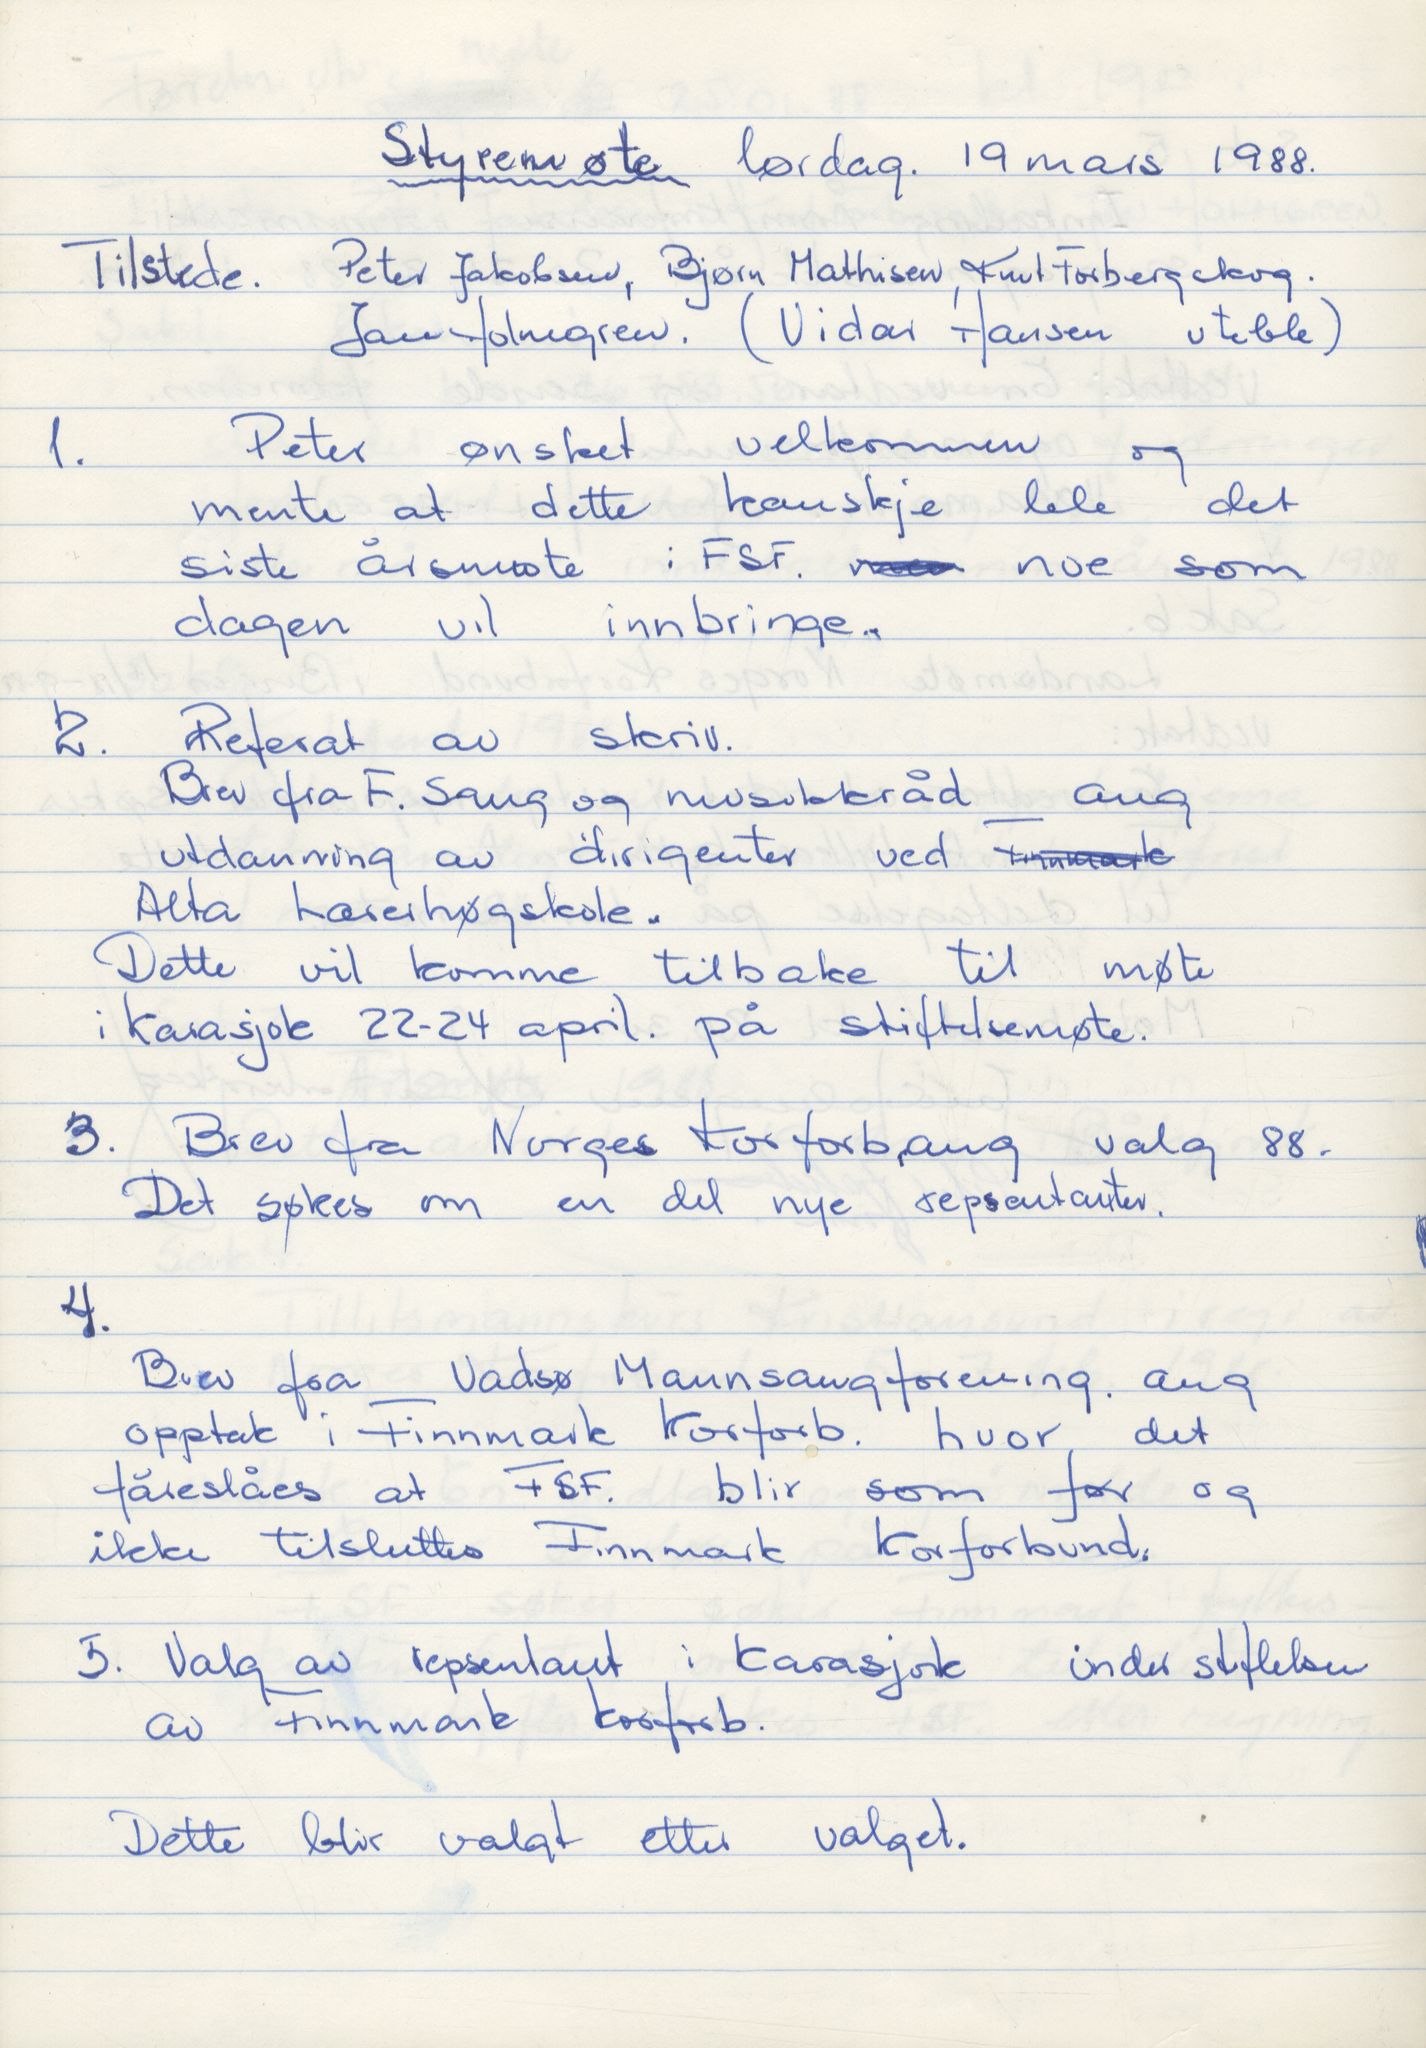 Styremøte lørdag. 19 mars 1988.
Tilstede. Peter Jakobsen, Bjørn Mathisen, Knut Forbergskog.
Jan Holmgren. (Vidar Hansen uteble)
1. Peter ønsket velkommen og
mente at dette kanskje ble det
siste årsmøte i FSF. noe som
dagen vil innbringe.
2. Referat av skriv.
Brev fra F. Sang og musikkråd ang
utdanning av dirigenter ved Finnmark
Alta Lærerhøgskole.
Dette vil komme tilbake til møte
i Karasjok 22-24 april. på stiftelsemøte.
3. Brev fra Norges Korforb, ang valg 88.
Det søkes om en del nye repsentanter.
4.
Brev fra Vadsø Mannsangforening. ang
opptak i Finnmark Korforb. hvor det
føreslåes at FSF. blir som før og
ikke tilsluttes Finnmark Korforbund.
5. Valg av repsentant i Karasjok under stiftelsen
av Finnmark korforb.
Dette blir valgt etter valget.